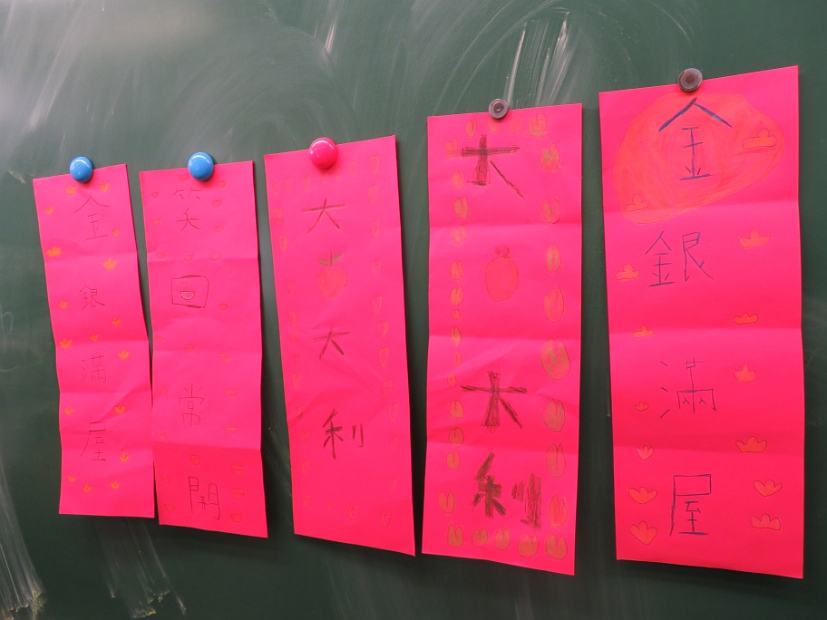 金銀滿屋
笑回常開
大大利
大大利
金銀滿屋